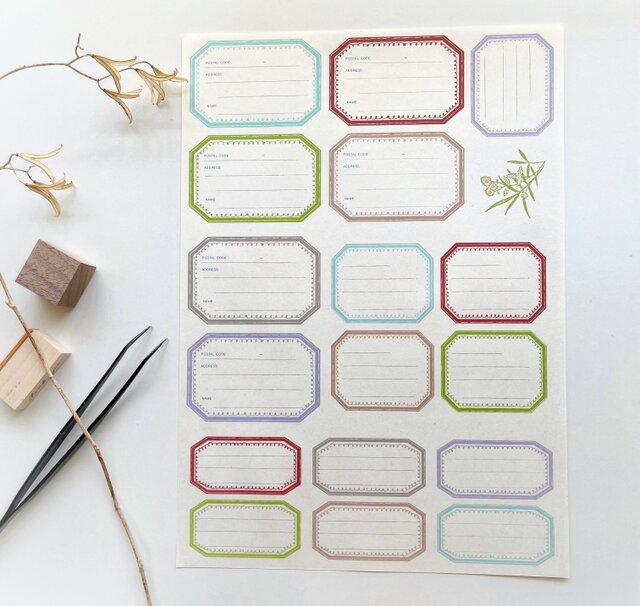 POSTAL CODE –
ADDRESS
NAME
POSTAL CODE –
ADDRESS
NAME
POSTAL CODE –
ADDRESS
NAME
POSTAL CODE –
ADDRESS
NAME
POSTAL CODE –
ADDRESS
NAME
POSTAL CODE –
ADDRESS
NAME